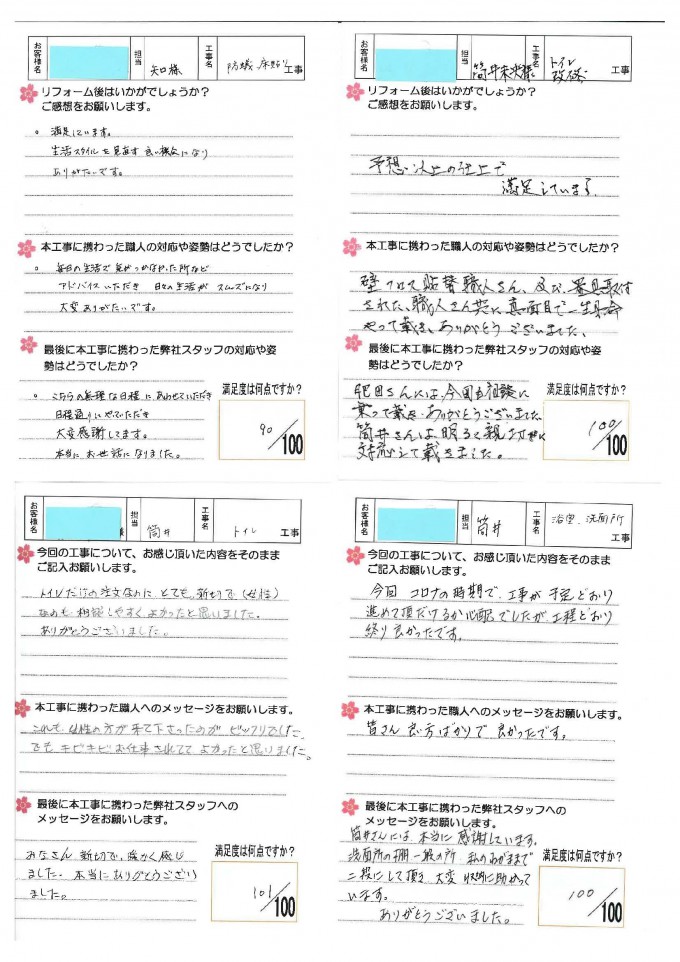 お客様名
担当
矢口様
工事名
防蟻・床貼り
工事
リフォーム後はいかがでしょうか?
ご感想をお願いします。
。満足しています。
生活スタイルを見直す良い機会になり
ありがたいです。
本工事に携わった職人の対応や姿勢はどうでしたか?
。毎日の生活で気がつかなかった所など
アドバイスいただき 日々の生活が スムーズになり
大変ありがたいです。
最後に本工事に携わった弊社スタッフの対応や姿
勢はどうでしたか?
。こちらの無理な日程にあわせていただき
日程通りにやっていただき
大変感謝してます。
本当に お世話になりました。
満足度は何点ですか?
90/100
お客様名
担当
筒井
工事名
トイレ
改修
工事
リフォーム後はいかがでしょうか?
ご感想をお願いします。
予想以上の仕上で
満足しています。
本工事に携わった職人の対応や姿勢はどうでしたか?
壁クロス貼替職人さん、及び、器具取付
された、職人さん共に、真面目で一生懸命
やって戴き、ありがとうございました。
最後に本工事に携わった弊社スタッフの対応や姿
勢はどうでしたか?
さんには、今回も相談に
乗って戴き、ありがとうございました。
筒井さんは明るく親切に
対応して戴きました。
満足度は何点ですか?
100/100
お客様名
様
担当
筒井
工事名
トイレ
工事
今回の工事について、お感じ頂いた内容をそのまま
ご記入お願いします。
トイレだけの注文なのに、とても、親切で(女性)
なので、相談しやすく、よかったと思いました。
ありがとうございました。
本工事に携わった職人へのメッセージをお願いします。
これも、女性の方が来て下さったのが ビックリでした
でも キビキビ お仕事されてて よかったと思いました。
最後に本工事に携わった弊社スタッフへの
メッセージをお願いします。
みなさん 親切で、暖かく感じ
ました。本当にありがとうござい
ました。
満足度は何点ですか?
101/100
お客様名
担当
筒井
工事名
浴室、洗面所
工事
今回の工事について、お感じ頂いた内容をそのまま
ご記入お願いします。
今回 コロナの時期で、工事が予定どおり
進めて頂だけるか心配でしたが、工程どおり
終り良かったです。
本工事に携わった職人へのメッセージをお願いします。
皆さん良い方ばかりで 良かったです。
最後に本工事に携わった弊社スタッフへの
メッセージをお願いします。
筒井さんには、本当に 感謝しています。
洗面所の棚 一段の所 私のわがままで
二段にして頂き、大変 収納に助かって
います。
ありがとうございました。
満足度は何点ですか?
100/100